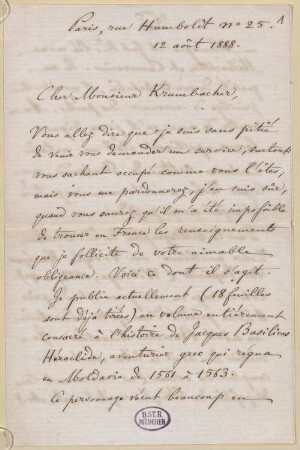 Paris, rue Humboldt no 25. 1
12 août 1888.
Cher Monsieur Krumbacher,
Vous allez dire que je suis sans pitié
de venir vous demander un service, surtout
vous sachant occupé comme vous l'êtes,
mais vous me pardonnerez, j'en suis sûr,
quand vous saurez qu'il m'a été impossible
de trouver en France les renseignements
que je sollicite de votre aimable
obligeance. Voici ce dont il s'agit.
Je publie actuellement (18 feuilles
sont déjà tirées) un volume entièrement
consacré à l'histoire de Jacques Basilicos
Héraclide, aventurier grec qui régna
en Moldavie de 1561 à 1563.
Ce personnage vécut beaucoup en
B.ST.B.
MÜNCHEN